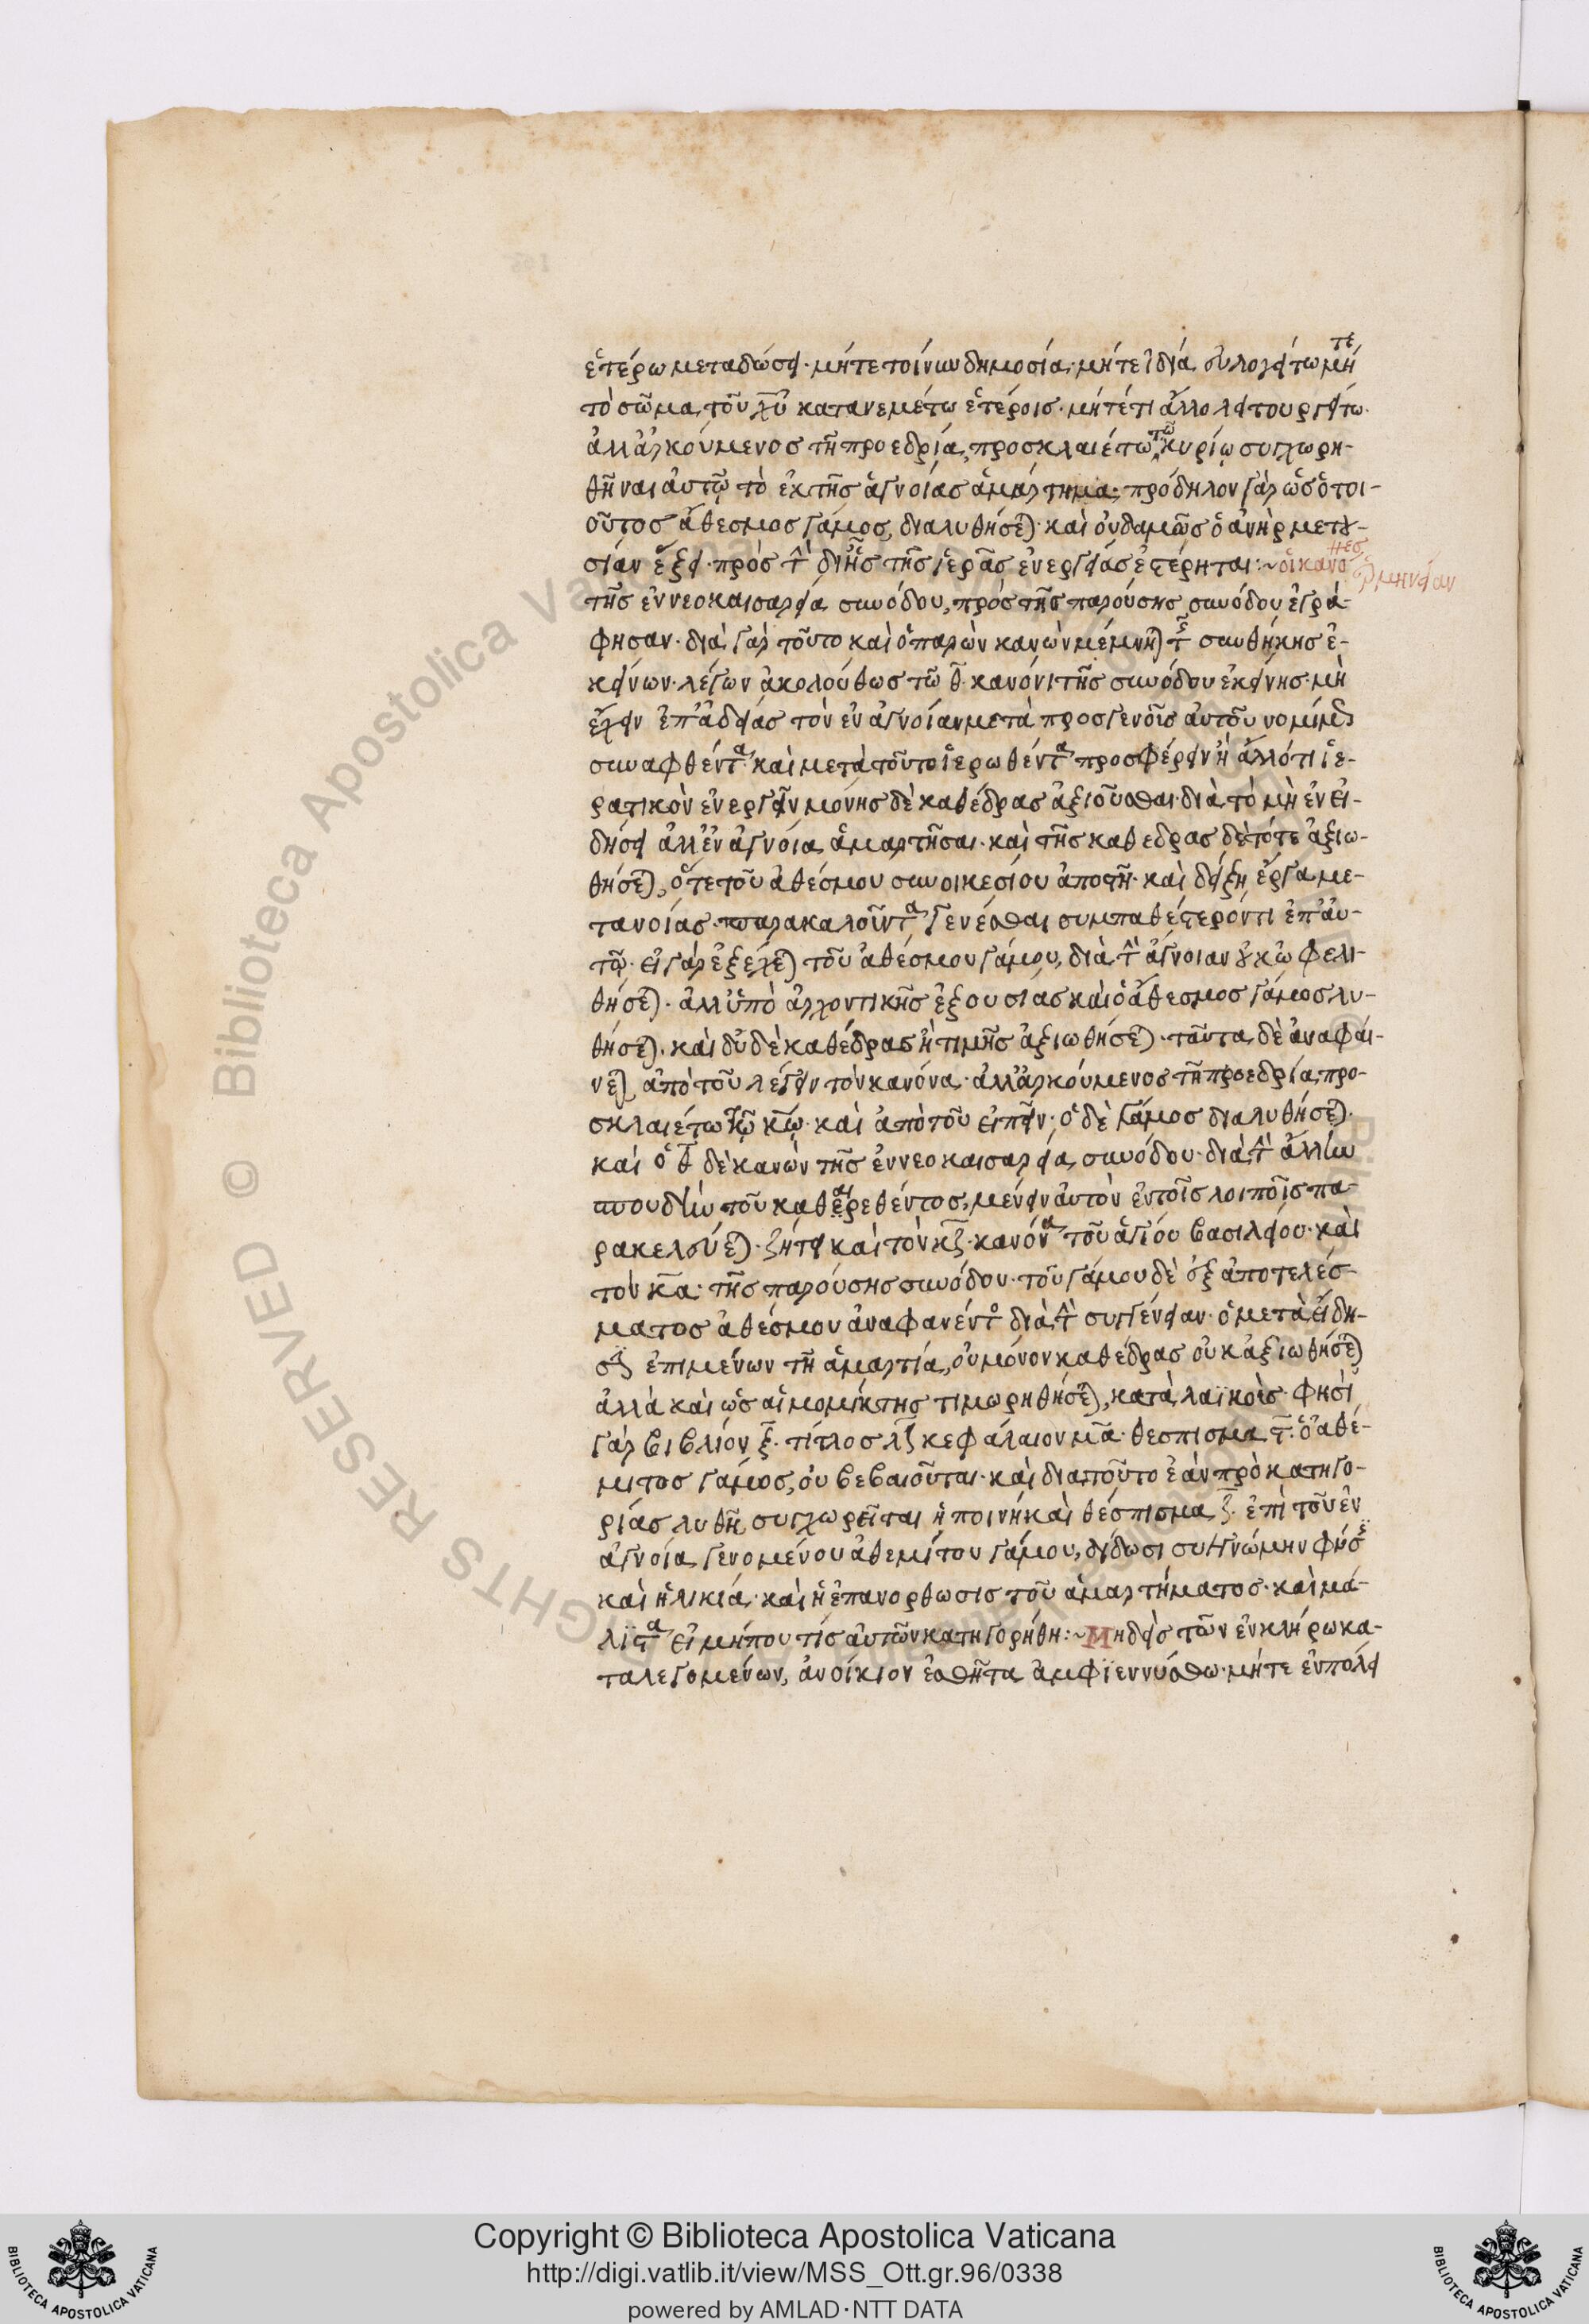 ἑτέρω μεταδώσει· μήτε τοίνυν δημοσία· μήτε ἰδία εὐλογείτω μήτε
τὸ σῶμα τοῦ χῦ κατανεμέτω ἑτέροις· μήτέ τι ἄλλο λειτουργείτω·
ἀλλ' ἀρκούμενος τῆ προεδρία, προσκλαιέτω τῶ κυρίω συγχωρη-
θῆναι αὐτῶ τὸ ἐκ τῆς ἀγνοίας ἁμάρτημα· πρόδηλον γὰρ ὡς ὁ τοι-
οῦτος ἄθεσμος γάμος, διαλυθήσεται· καὶ οὐδαμῶς ὁ ἀνὴρ μετου-
σίαν ἕξει· πρὸς τὴν δι' ἧς τῆς ἱερᾶς ἐνεργείας ἐστέρηται:~ οἱ κανόνες
ἑρμηνείαν
τῆς ἐν νεοκαισαρεία συνόδου, πρὸς τῆς παρούσης συνόδου ἐγρά-
φησαν· διὰ γὰρ τοῦτο καὶ ὁ παρὼν κανὼν μέμνηται τῆς συνθήκης ἐ-
κείνων· λέγων ἀκολούθως τῶ θ κανόνι τῆς συνόδου ἐκείνης· μὴ
ἔχειν ἐπ' ἀδείας τὸν ἐν ἀγνοίαν μετὰ προσγενοῖς αὐτοῦ νομίμως
συναφθέντα· καὶ μετὰ τοῦτο ἱερωθέντα προσφέρειν ἢ ἄλλό τι ἱε-
ρατικὸν ἐνεργεῖν μόνης δὲ καθέδρας ἀξιοῦσθαι· διὰ τὸ μὴ ἐν εἰ-
δήσει ἀλλ' ἐν ἀγνοία ἁμαρτῆσαι· καὶ τῆς καθεδρας δὲ τότε ἀξιω-
θήσεται, ὅτε τοῦ ἀθέσμου συνοικεσίου ἀποστῆ· καὶ δείξη ἔργα με-
τανοίας· παρακαλοῦντα γενέσθαι συμπαθέστερόν τι ἐπ' αὐ-
τῶ· εἰ γὰρ ἐξέχεται τοῦ ἀθέσμου γάμου, διὰ τὴν ἄγνοιαν οὐκ ὠφελι-
θήσεται· ἀλλ' ὑπὸ ἀρχοντικῆς ἐξουσίας καὶ ὁ ἄθεσμος γάμος λυ-
θήσεται· καὶ οὐδὲ καθέδρας ἢ τιμῆς ἀξιωθήσεται· ταῦτα δὲ ἀναφαί-
νεται ἀπὸ τοῦ λέγειν τὸν κανόνα· ἀλλ' ἀρκούμενος τῆ προεδρία, προ-
σκλαιέτω τῶ κω· καὶ ἀπὸ τοῦ εἰπεῖν· ὁ δὲ γάμος διαλυθήσεται·
καὶ ὁ θ δὲ κανὼν τῆς ἐν νεοκαισαρεία συνόδου· διὰ τὴν ἄλλην
σπουδὴν τοῦ καθαιρεθέντος, μένειν αὐτὸν ἐν τοῖς λοιποῖς πα-
ρακελεύεται· ζήτει καὶ τὸν κζ· κανόνα τοῦ ἁγίου βασιλείου· καὶ
τὸν κα· τῆς παρούσης συνόδου· τοῦ γάμου δὲ ἐξ ἀποτελέσ-
ματος ἀθέσμου ἀναφανέντος διὰ τὴν συγγένειαν· ὁ μετὰ εἰδή-
σεως ἐπιμένων τῆ ἁμαρτία, οὐ μόνον καθέδρας οὐκ ἀξιωθήσεται
ἀλλὰ καὶ ὡς αἱμομίκτης τιμωρηθήσεται, κατὰ λαϊκοὺς· φησὶ
γὰρ βιβλίον ξ· τίτλος λζ κεφάλαιον μα· θεσπισμα γ· ὁ ἀθέ-
μιτος γάμος, οὐ βεβαιοῦται· καὶ διατοῦτο ἐὰν πρὸ κατηγο-
ρίας λυθῆ, συγχωρεῖται ἡ ποινή καὶ θέσπισμα ζ· ἐπὶ τοῦ ἐν
ἀγνοία γενομένου ἀθεμίτου γάμου, δίδωσι συγγνώμην φησὶ
καὶ ἡλικία· καὶ ἡ ἐπανόρθωσις τοῦ ἁμαρτήματος· καὶ μά-
λιστα εἰ μήπου τίς αὐτῶν κατηγορήθη:~ Μηδεὶς τῶν ἐν κλήρω κα-
ταλεγομένων, ἀνοίκιον ἐσθῆτα ἀμφιεννύσθω· μήτε ἐν πόλει